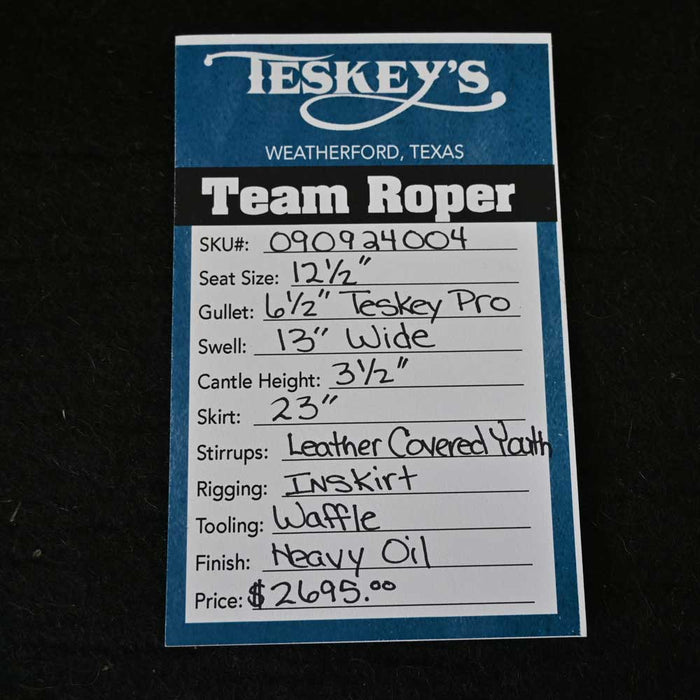 TESKEY'S
WEATHERFORD, TEXAS
Team Roper
SKU#: 090924004
Seat Size: 12½"
Gullet: 6½" Teskey Pro
Swell: 13" Wide
Cantle Height: 3½"
Skirt: 23"
Stirrups: Leather Covered Youth
Rigging: Inskirt
Tooling: Waffle
Finish: Heavy Oil
Price: $2695.00